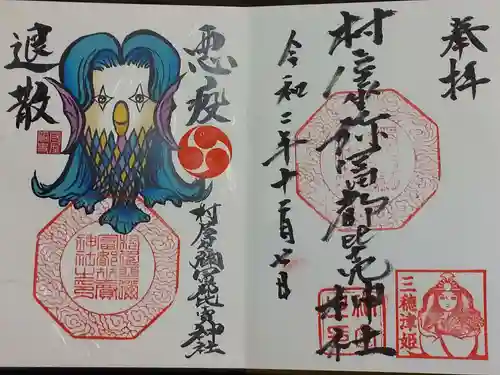 奉拝
村屋坐弥冨都比売神社
令和二年十一月七日
三穂津姫
悪疫
退散
村屋坐弥冨都比売神社